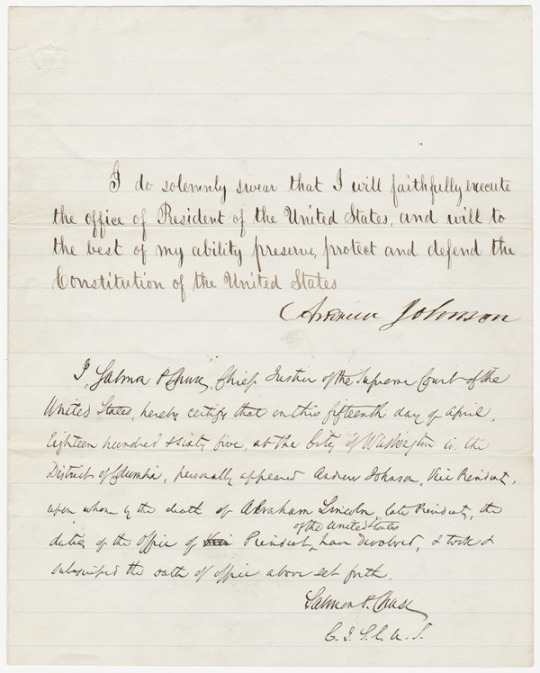 I do solemnly swear that I will faithfully execute
the office of President of the United States, and will to
the best of my ability preserve, protect and defend the
Constitution of the United States
Andrew Johnson
I, Salmon P. Chase, Chief Justice of the Supreme Court of the
United States, hereby certify that on this fifteenth day of April,
Eighteen hundred & sixty five, at the City of Washington in the
District of Columbia, personally appeared Andrew Johnson, Vice President,
upon whom by the death of Abraham Lincoln, late President, the
of the United States
duties of the Office of President, have devolved, & took &
subscribed the oath of office above set forth.
Salmon P. Chase
C. J. S. C. U. S.